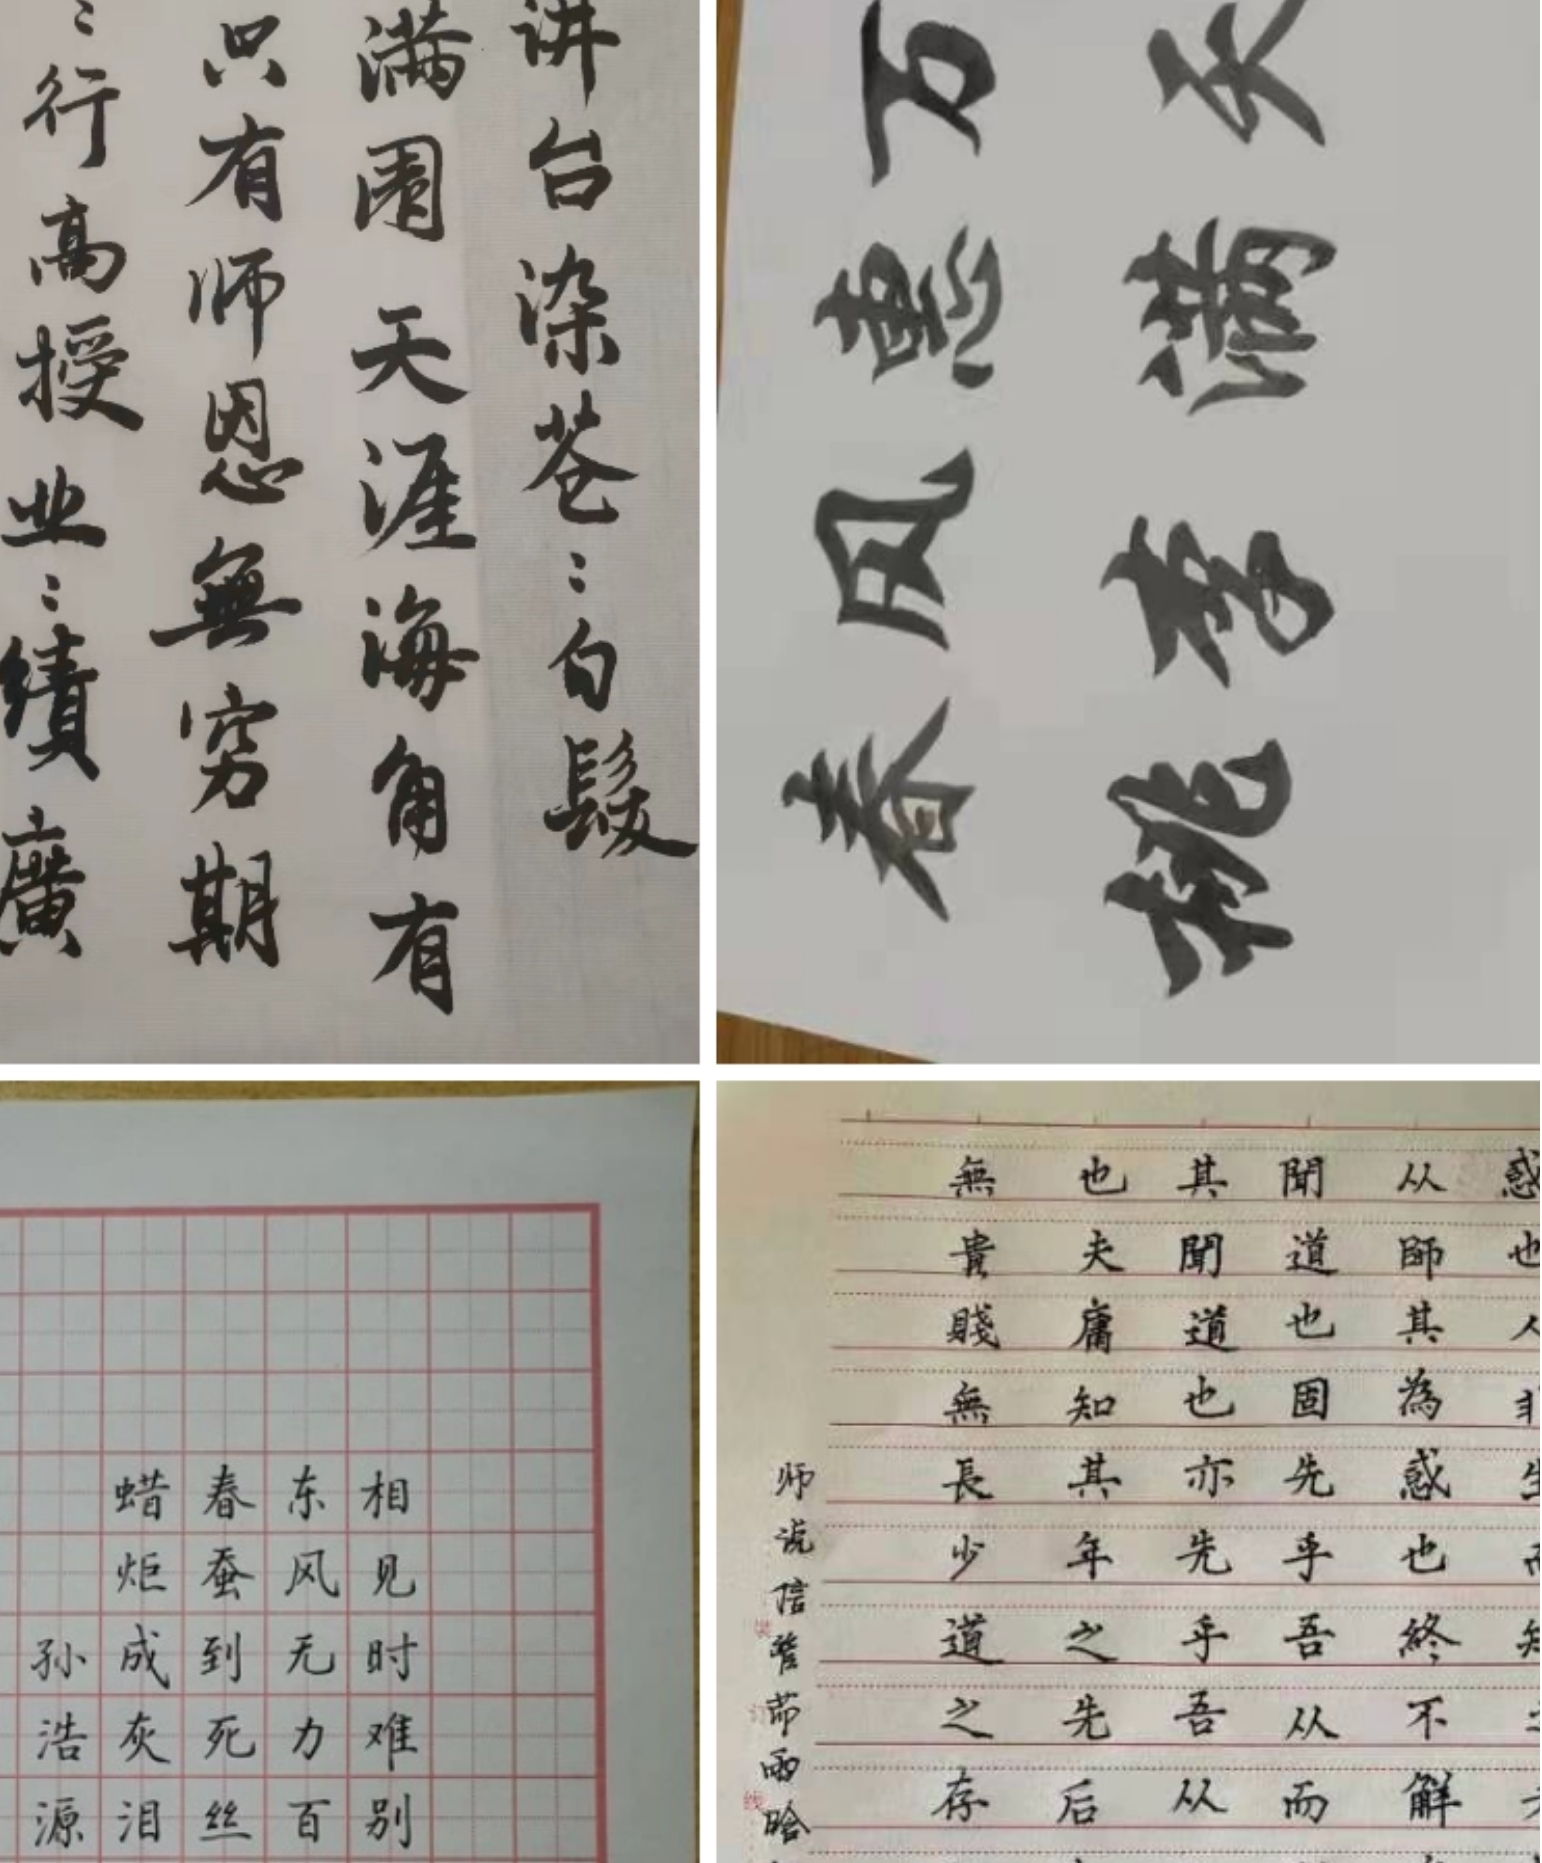 讲台染苍：白髮
满園天涯海角有
只有师恩無穷期
：行高授业：績廣
春风惠万
桃李满天
相见时难别
东风无力百
春蚕到死丝
蜡炬成灰泪
孙浩源
惑也人
从師其為惑也終不解
聞道也固先乎吾从而
其聞道也亦先乎吾从
也夫庸知其年之先后
無貴賤無長少道之存
师说信管茆雨晗